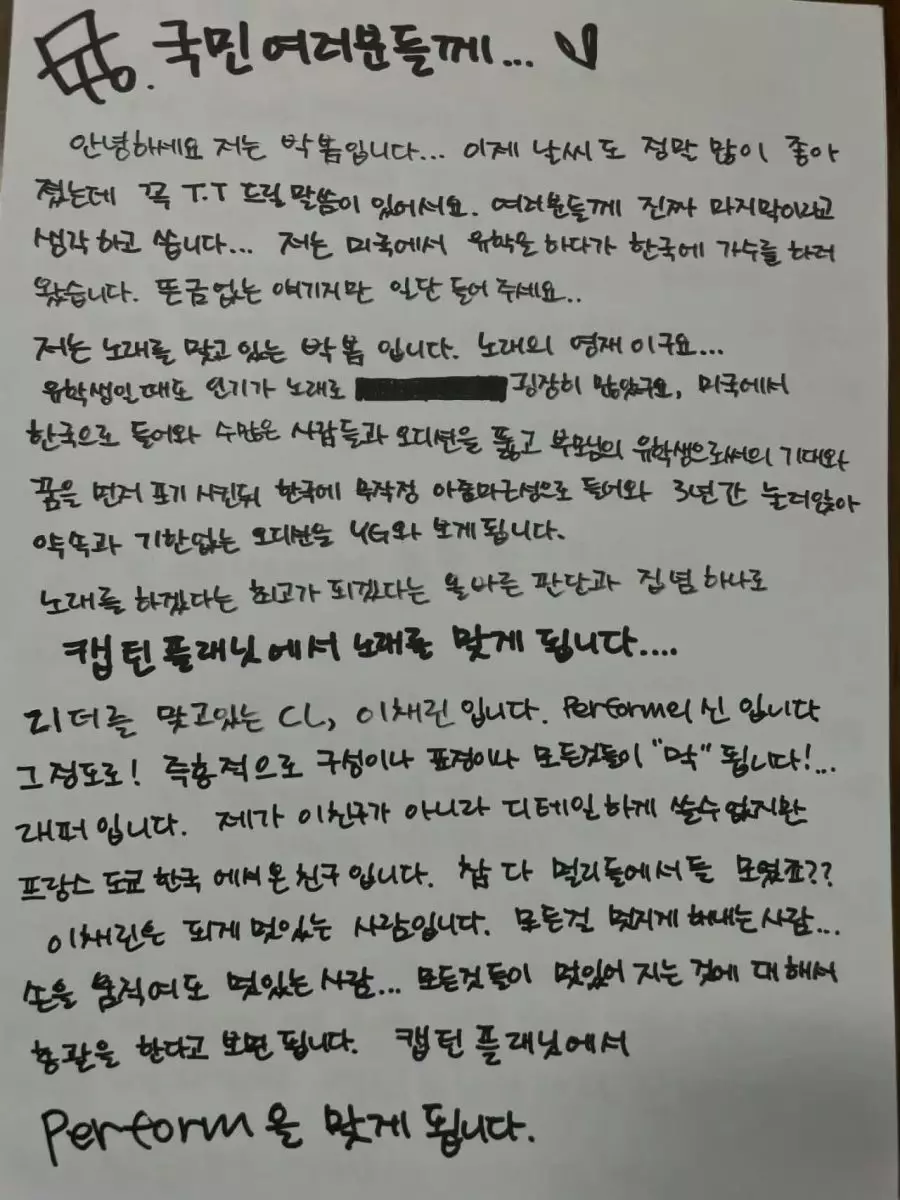 국민여러분들께...
안녕하세요 저는 박봄입니다... 이제 날씨도 정막 많이 좋아
졌는데 꼭 T.T 드릴말씀이 있어서요. 여러분들께 진짜 마지막이라고
생각하고 씁니다... 저는 미국에서 유학을 하다가 한국에 가수를 하러
왔습니다. 뜬금없는 얘기지만 일단 들어 주세요..
저는 노래를 맞고 있는 박봄 입니다. 노래의 영재 이구요...
유학생일때도 인기가 노래로 굉장히 많았구요, 미국에서
한국으로 들어와 수많은 사람들과 오디션을 뚫고 부모님의 유학생으로써의 기대와
꿈을 먼저 포기 시킨뒤 한국에 무작정 아줌마근성으로 들어와 3년간 눌러앉아
약속과 기한없는 오디션을 YG와 보게됩니다.
노래를 하겠다는 최고가 되겠다는 올바른 판단과 집념 하나로
캡틴플래닛에서 노래를 맞게 됩니다....
리더를 맞고있는 CL, 이채린입니다. Perform의 신 입니다
그정도로! 즉흥적으로 구성이나 표정이나 모든것들이 "막" 됩니다!...
래퍼입니다. 제가 이친구가 아니라 디테일하게 쓸수없지만
프랑스 도쿄 한국 에서온 친구입니다. 참 다 멀리들에서들 모였죠??
이채린은 되게 멋있는 사람입니다. 모든걸 멋지게 해내는사람...
손을 움직여도 멋있는사람... 모든것들이 멋있어 지는 것에 대해서
총괄을 한다고 보면 됩니다. 캡틴 플래닛에서
Perform을 맞게 됩니다.